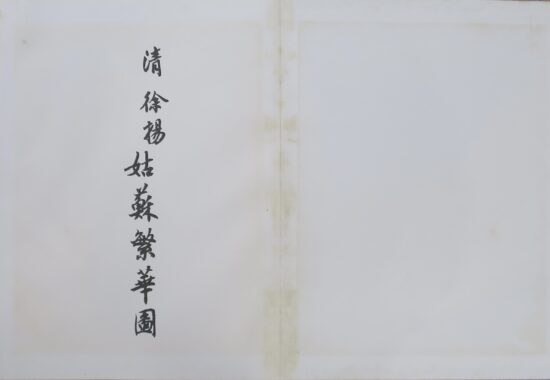 清 徐揚 姑蘇繁華圖